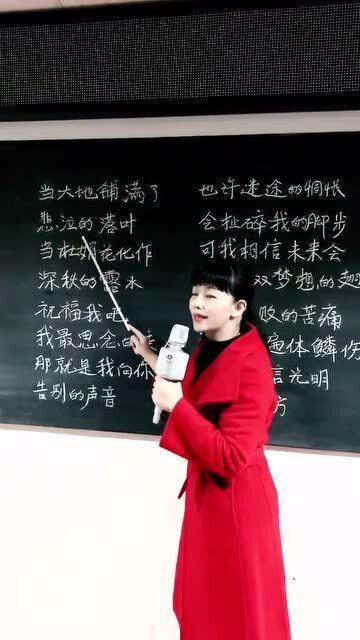 当大地铺满了
悲泣的落叶
当杜娟花化作
深秋的露水
祝福我吧
我最思念的
那就是我向你
告别的声音
也许迷途的惆怅
会扯碎我的脚步
可我相信未来会
双梦想的翅
败的苦痛
遍体鳞伤
信光明
方